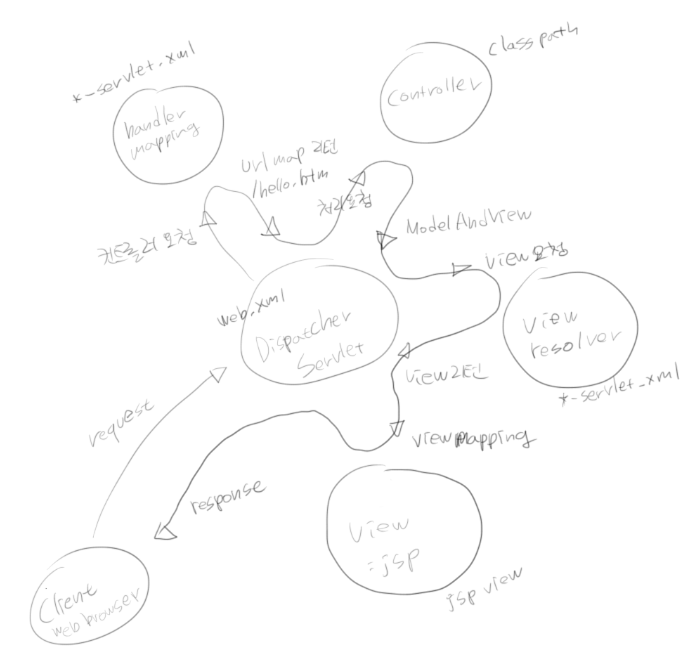 *-servlet.xml
handler
mapping
classpath
Controller
url map 리턴
/hello.htm
처리요청
컨트롤러 요청
ModelAndView
view요청
web.xml
Dispatcher
Servlet
View
resolver
*-servlet.xml
view리턴
view mapping
request
response
View
:jsp
jsp view
Client
web browser